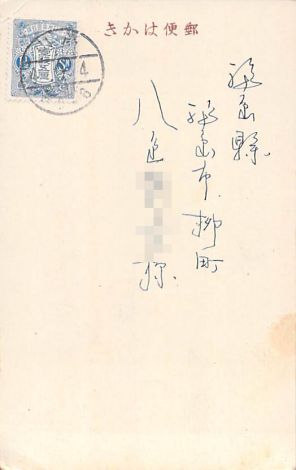 郵便はかき
福島縣
福島市柳町
八巻
様